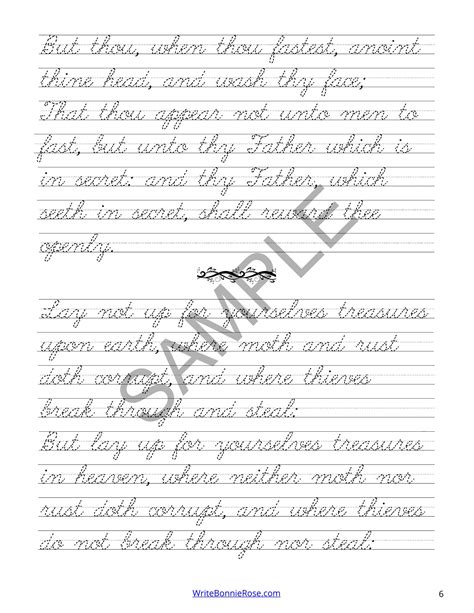 But thou, when thou fastest, anoint
thine head, and wash thy face;
That thou appear not unto men to
fast, but unto thy Father which is
in secret: and thy Father, which
seeth in secret, shall reward thee
openly.
SAMPLE
Lay not up for yourselves treasures
upon earth, where moth and rust
doth corrupt, and where thieves
break through and steal:
But lay up for yourselves treasures
in heaven, where neither moth nor
rust doth corrupt, and where thieves
do not break through nor steal:
WriteBonnieRose.com
6